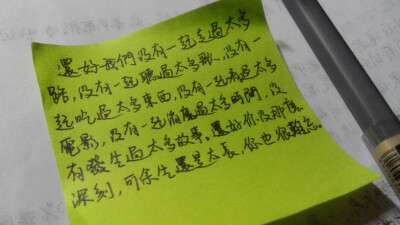 還好我們沒有一起走過太多
路，沒有一起聽過太多歌，沒有一
起吃過太多東西，沒有一起看過太多
電影，沒有一起消磨過太多時間，沒
有發生過太多故事。還好你沒那麼
深刻，可余生還是太長，你也很難忘。